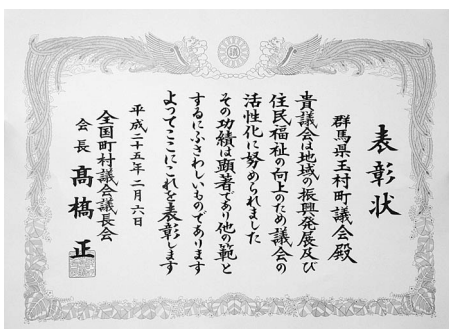 表彰状
群馬県玉村町議会殿
貴議会は地域の振興発展及び
住民福祉の向上のため議会の
活性化に努められました
その功績は顕著であり他の範と
するにふさわしいものであります
よってここにこれを表彰します
平成二十五年二月六日
全国町村議会議長会
会長 髙橋 正